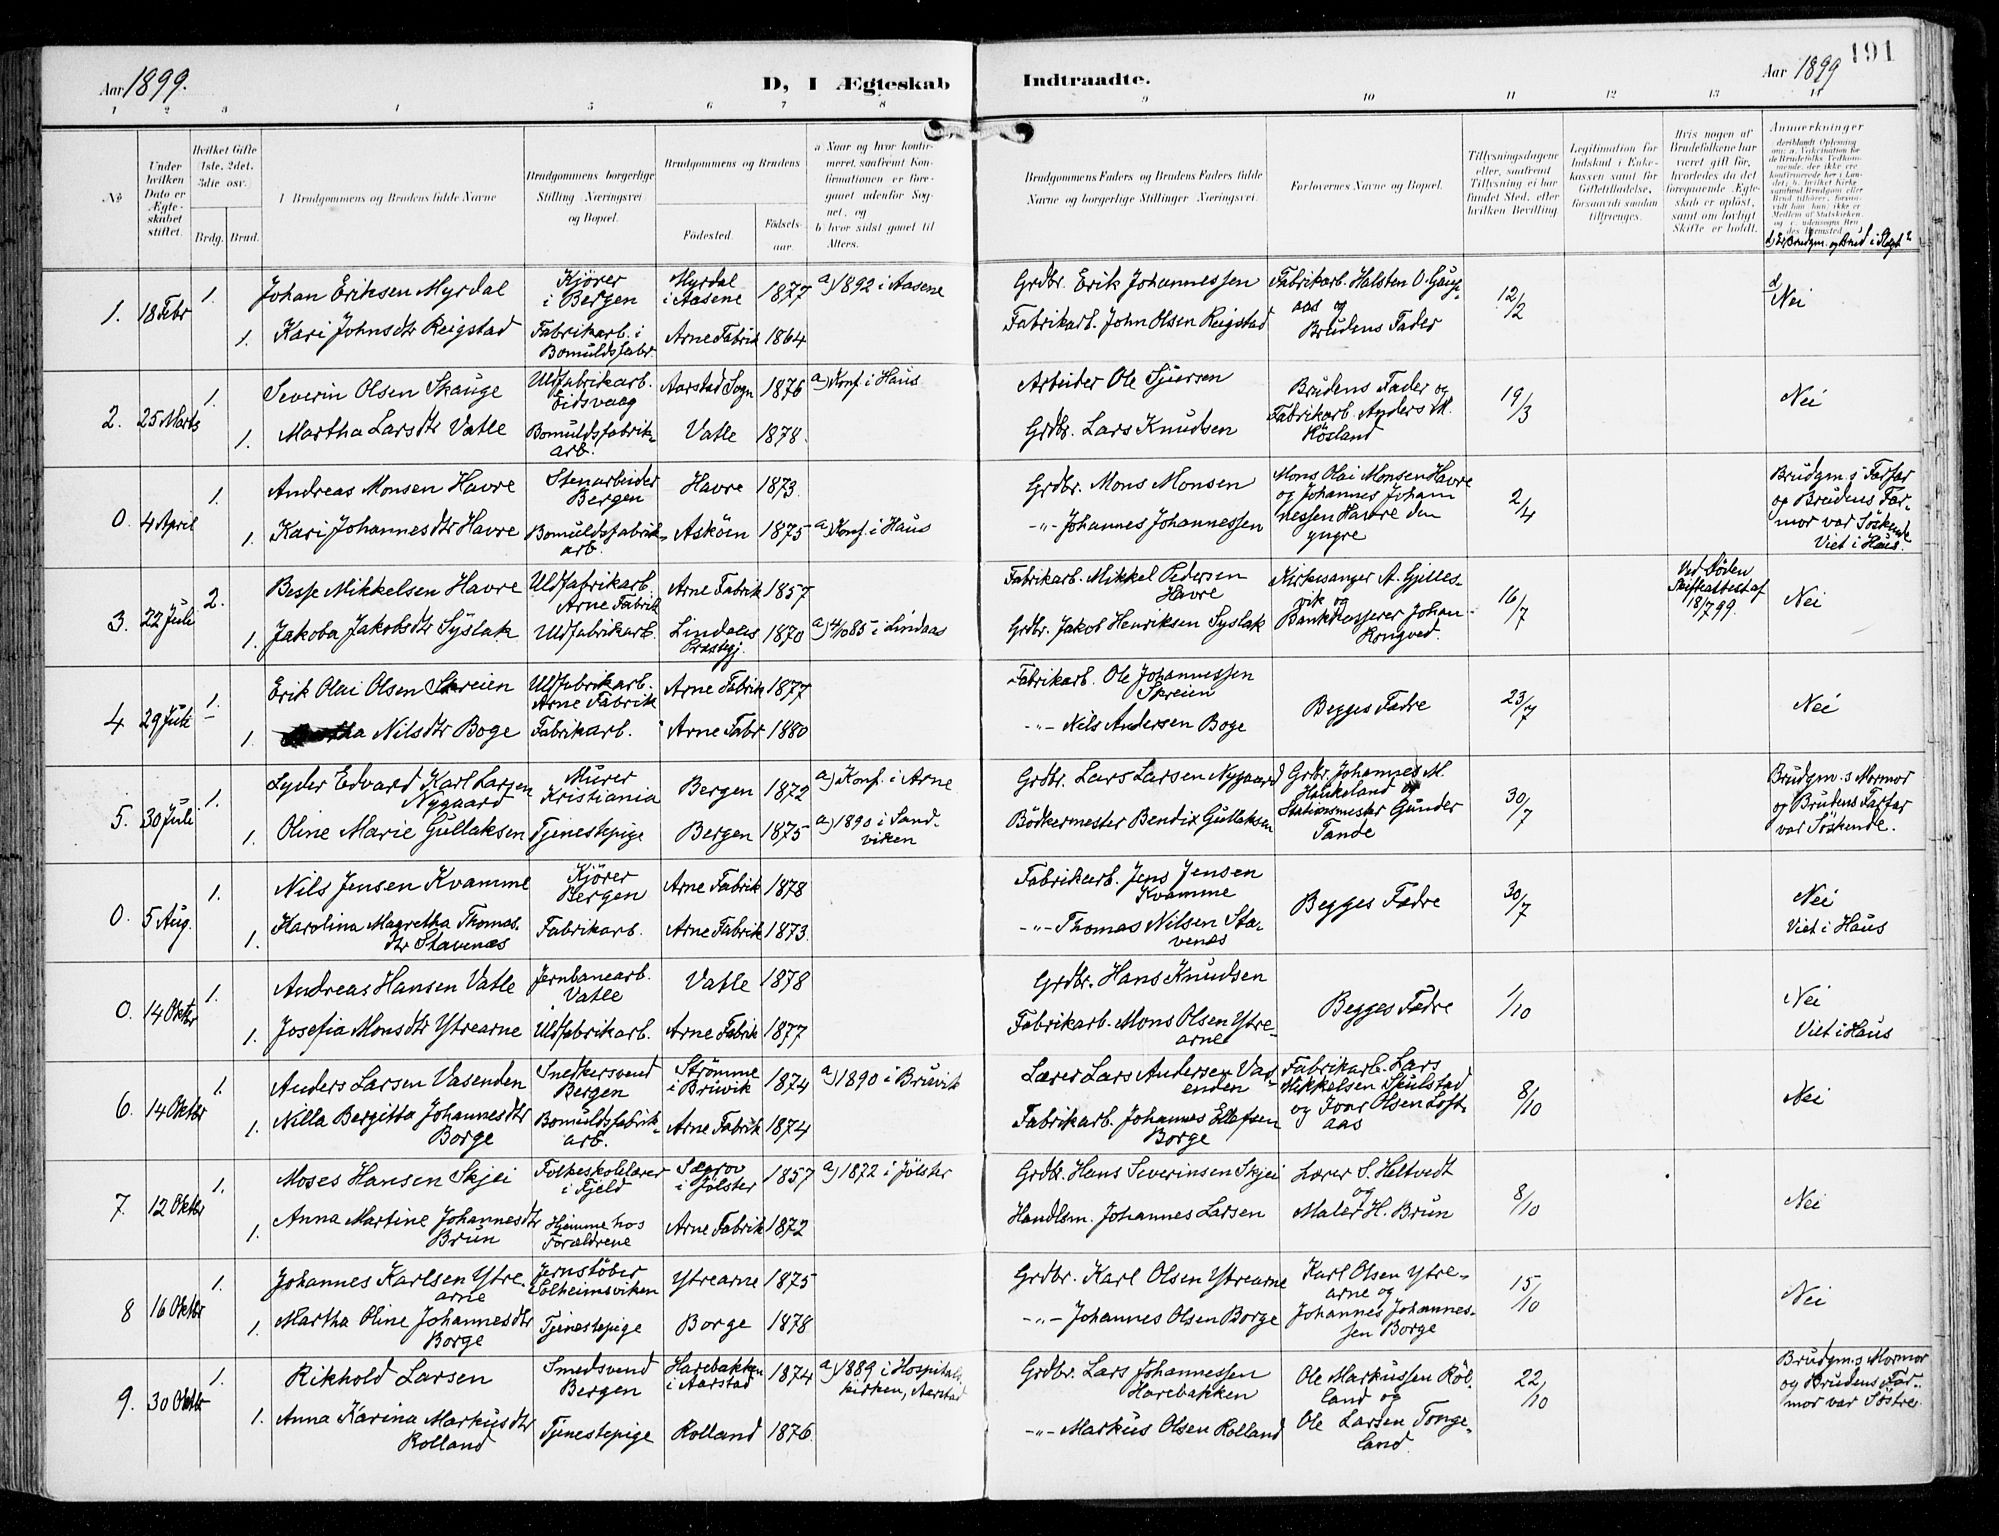 Aar 1899.
D, I Ægteskab Indtraadte.
Aar 1899
191
1 2 3 4 5 6 7 8 9 10 11 12 13 14
No
Under hvilken Dato er Ægteskabet stiftet.
Hvilket Gifte (1ste, 2det, 3die osv.)
Brdg. Brud.
Brudgommens og Brudens fulde Navne
Brudgommens borgerlige Stilling Næringsvei og Bopæl.
Brudgommens og Brudens
Fødested. Fødselsaar.
a Naar og hvor konfirmeret, saafremt Konfirmationen er foregaaet udenfor Sognet, og
b hvor sidst gaaet til Alters.
Brudgommens Faders og Brudens Faders fulde Navne og borgerlige Stillinger Næringsvei.
Forlovernes Navne og Bopæl.
Tillysningsdagene eller, saafremt Tillysning ei har fundet Sted, efter hvilken Bevilling
Legitimation for Indskud i Enkekassen samt for Giftetilladelse, forsaavidt saadan tiltrænges.
Hvis nogen af Brudefolkene har været gift før, hvorledes da det foregaaende Ægteskab er opløst, samt om lovligt Skifte er holdt.
Anmerkninger
d) Er Brudgm. og Brud i Slægt?
1. 18 Febr 1. Johan Eriksen Myrdal Kjører i Bergen Myrdal i Aasene 1877 a) 1892 i Aasene Grdbr. Erik Johannessen Fabrikarb. Halsten O. Gaupaas og Brudens Fader 12/2 d Nei
1. Kari Johnsdtr Reigstad Fabrikarb. i Bomuldsfabr. Arne Fabrik 1864 Fabrikarb. John Olsen Reigstad
2. 25 Marts 1. Severin Olsen Skauge Uldfabrikarb. Eidsvaag Aarstad Sogn 1876 a) Konf. i Haus Arbeider Ole Sjursen Brudens Fader og Fabrikarb. Anders M. Høsland 19/3 Nei
1. Martha Larsdtr Vatle Bomuldsfabrikarb. Vatle 1878. Grdbr. Lars Knudsen
0. 4 April 1. Andreas Monsen Havre Stenarbeider Bergen Havre 1873. Grdbr. Mons Monsen Mons Olai Monsen Havre og Johannes Johannessen Havre den yngre 2/4 Brudgm.s Farfar og Brudens Farmor var Søskende Viet i Haus.
1. Kari Johannesdtr Havre Bomuldsfabrikarb. Askøen 1875 a) Konf. i Haus -"- Johannes Johannessen
3. 22 Juli 2. Besse Mikkelsen Havre Uldfabrikarb. Arne Fabrik Arne Fabrik 1857 Fabrikarb. Mikkel Pedersen Havre Kirkesanger A. Gjillesvik og Bankkasserer Johan Rongved. 16/7 Ved Døden Skifteattest af 18/7 99. Nei
1. Jakoba Jakobsdtr Syslak Uldfabrikarb. Lindaas Præstegj. 1870 a) 4/10 85 i Lindaas Grdbr. Jakob Henriksen Syslak
4 29 Juli 1. Erik Olai Olsen Skreien Uldfabrikarb. Arne Fabrik Arne Fabrik 1877 Fabrikarb. Ole Johannessen Skreien Begges Fædre 23/7 Nei
1. Nilsdtr Boge Fabrikarb. Arne Fabr 1880 -"- Nils Andersen Boge
5. 30 Juli 1. Lyder Edvard Karl Larsen Nygaard Murer Kristiania Bergen 1872 a) Konf. i Arne Grdbr. Lars Larsen Nygaard Grdbr. Johannes M. Haukeland og Stationsmester Gunder Tande 30/7 Brudgm.s Mormor og Brudens Farfar var Søskende.
1. Oline Marie Gullaksen Tjenestepige Bergen 1875 a) 1890 i Sandviken Bødkermester Bendix Gullaksen
0. 5 Aug. 1. Nils Jensen Kvamme Kjører Bergen Arne Fabrik 1878 Fabrikarb. Jens Jensen Kvamme Begges Fædre 30/7 Nei Viet i Haus
1. Karolina Magretha Thomasdtr Stavenæs Fabrikarb. Arne Fabrik 1873. -"- Thomas Nilsen Stavenæs
0. 14 Oktbr 1. Andreas Hansen Vatle Jernbanearb. Vatle Vatle 1878 Grdbr. Hans Knudsen Begges Fædre 1/10 Nei Viet i Haus
1. Josefia Monsdtr Ytrearne Uldfabrikarb. Arne Fabrik 1877 Fabrikarb. Mons Olsen Ytrearne
6. 14 Oktbr 1. Anders Larsen Vasenden Snedkersvend Bergen Strømme i Bruvik 1874 a) 1890 i Bruvik Lærer Lars Andersen Vasenden Fabrikarb. Lars Mikkelsen Skulstad og Ivar Olsen Loftaas 8/10 Nei
1. Nilla Bergitta Johannesdtr Borge Bomuldsfabrikarb. Arne Fabrik 1874 Fabrikarb. Johannes Ellefsen Borge
7. 12 Oktbr 1. Moses Hansen Skjei Folkeskolelærer i Fjeld Sægrov i Jølster 1857 a) 1872 i Jølster Grdbr. Hans Severinsen Skjei Lærer S. Heltvedt og Maler H. Brun 8/10 Nei
1. Anna Martine Johannesdtr Brun Hjemme hos Forældrene Arne Fabrik 1872 Handlsm. Johannes Larsen
8 16 Oktbr 1. Johannes Karlsen Ytrearne Jernstøber Solheimsviken Ytrearne 1875 Grdbr. Karl Olsen Ytrearne Karl Olsen Ytrearne og Johannes Johannessen Borge 15/10 Nei
1. Martha Oline Johannesdtr Borge Tjenestepige Borge 1878 -"- Johannes Olsen Borge
9. 30 Oktbr 1. Rikhold Larsen Smedsvend Bergen Harebakken i Aarstad 1874 a) 1889 i Hospitalskirken, Aarstad Grdbr. Lars Johannessen Harebakken Ole Markussen Rølland og Ole Larsen Tongeland. 22/10 Brudgm.s Mormor og Brudens Farmor var Søstre.
1. Anna Karina Markusdtr Rolland Tjenestepige Rolland 1876 -"- Markus Olsen Rolland